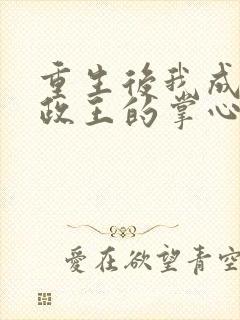 重生後我成
政王的掌心
愛在欲望青空